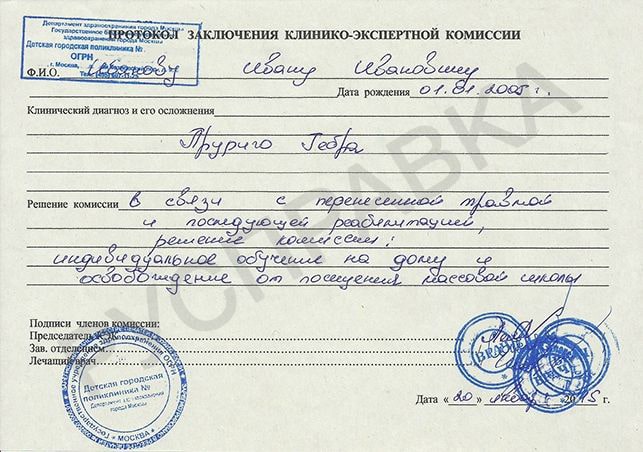 ПРОТОКОЛ ЗАКЛЮЧЕНИЯ КЛИНИКО-ЭКСПЕРТНОЙ КОМИССИИ
Департамент здравоохранения города Москвы
Государственное
здравоохранения города Москвы
Детская городская поликлиника №
ОГРН
г. Москва,
Ф.И.О. Иванову Ивану Ивановичу
Дата рождения 01.01.2005 г.
Клинический диагноз и его осложнения
Пруриго Гебра
Решение комиссии в связи с перенесенной травмой
и последующей реабилитацией,
решение комиссии:
индивидуальное обучение на дому и
освобождение от посещения массовой школы
СПРАВКА
Подписи членов комиссии:
Председатель КЭК
Зав. отделением
Лечащий врач
Детская городская
поликлиника №
Департамент здравоохранения
города Москвы
* МОСКВА *
ВРАЧ
Дата « 20 » 2015 г.